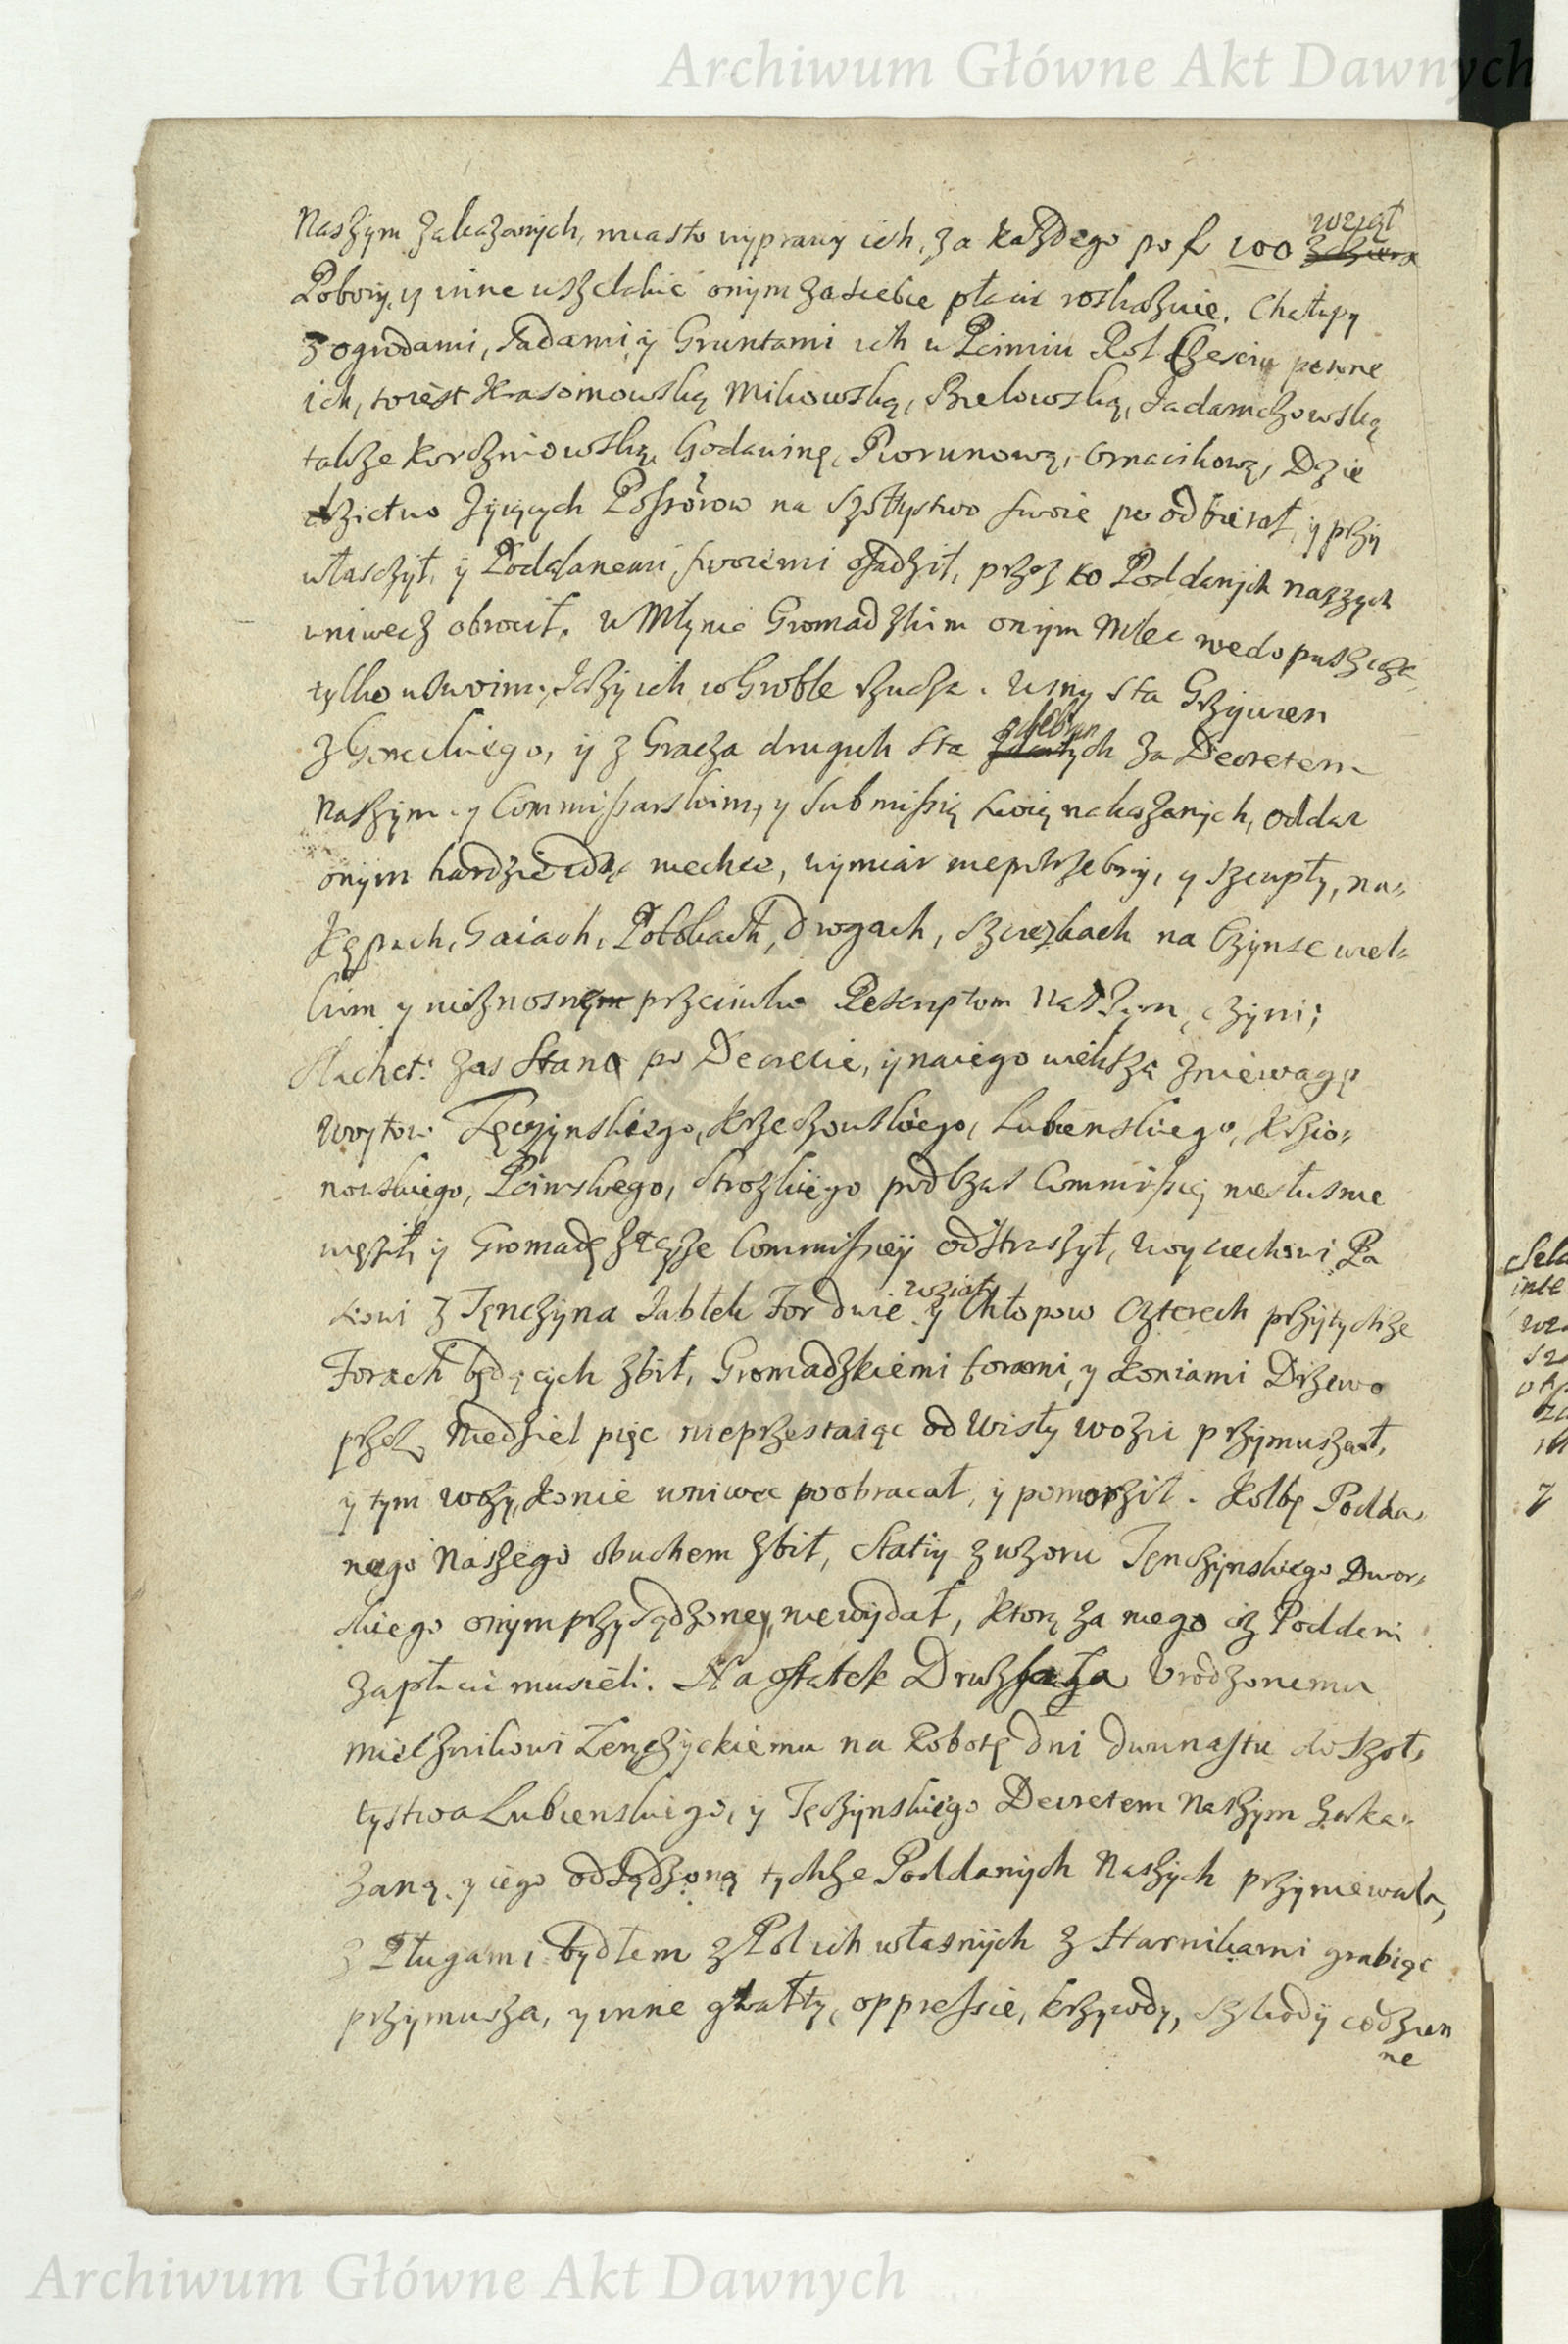 Archiwum Główne Akt Dawnych
Naszym zakazanych, miasto wyprawy ich, za każdego po f 100 wziął
Pobory, y inne wszelakie onym za siebie płacić roskazuie. Chałupy
z ogrodami, sadami, y Gruntami ich w Pcimiu Rol Czescią pewne
ich, to iest Krasomowską Mikowską, Bielowską, Jadamczowską
także Korczniowską, Godawinę, Piorunową, Gnacikową, Dzie
dzictwo żyiących Possorow na szołtystwo swoie poodbierał, y przy
własczył, y Poddanemi swoiemi osadził, przez to Poddanych naszych
wniwecz obrocił. W Młynie Gromadzkim onym Mlec niedopuszcza
tylko w swoim, ich w Groble rzuca. Winy sta Grzywien
z Goreckiego, y z Gracza drugich sta za Decretem
Naszym y Commissarskim, y submissią swoią nakazanych, oddac
onym niechce, wymiar niepotrzebny, y szczupły, na
Kępach, Gaiach, Potokach, drogach, sciezkach na Czynsz wiel
kim y nieznosnym przeciwko Rescriptom Naszym, czyni;
Slachet: zas Stano po Decrecie, y na iego większą zniewagę
Woytow Tęczynskiego, Krzeczowskiego, Lubienskiego, Krzio
nowskiego, Pcimskiego, Stroskiego podczas Commissiey niesłusznie
więził, y Gromadę z teyże Commissiey odstraszył, Woyciechowi Pa
z Tęnczyna Jabłek For dwie wziął, y Chłopow czterech przy tychże
Forach będących zbił, Gromadzkiemi forami, y koniami Drzewo
przez Niedziel pięc nieprzestaiąc od Wisły wozić przymuszał,
y tym wozy, konie wniwec poobracał, y pomorził. Kolbę Podda
nego Naszego obuchem zbił, Statiy z wzoru Tęnczynskiego Dwor
skiego onym przysądzoney, niewydał, ktorą za niego iż Poddani
zapłacić musieli. Na ostatek Urodzonemu
Miecznikowi Łenczyckiemu na Robotę dni dwunastu do Szoł
tystwa Lubienskiego, y Tęczynskiego Decretem Naszym zaka
zaną, y iego odsądzoną tychże Poddanych Naszych przyniewala,
z Pługami bydłem z Pol ich własnych z Harnikami grabiąc
przymusza, y inne gwałty, oppressie, krzywdy, szkody codzien
ne
Archiwum Główne Akt Dawnych